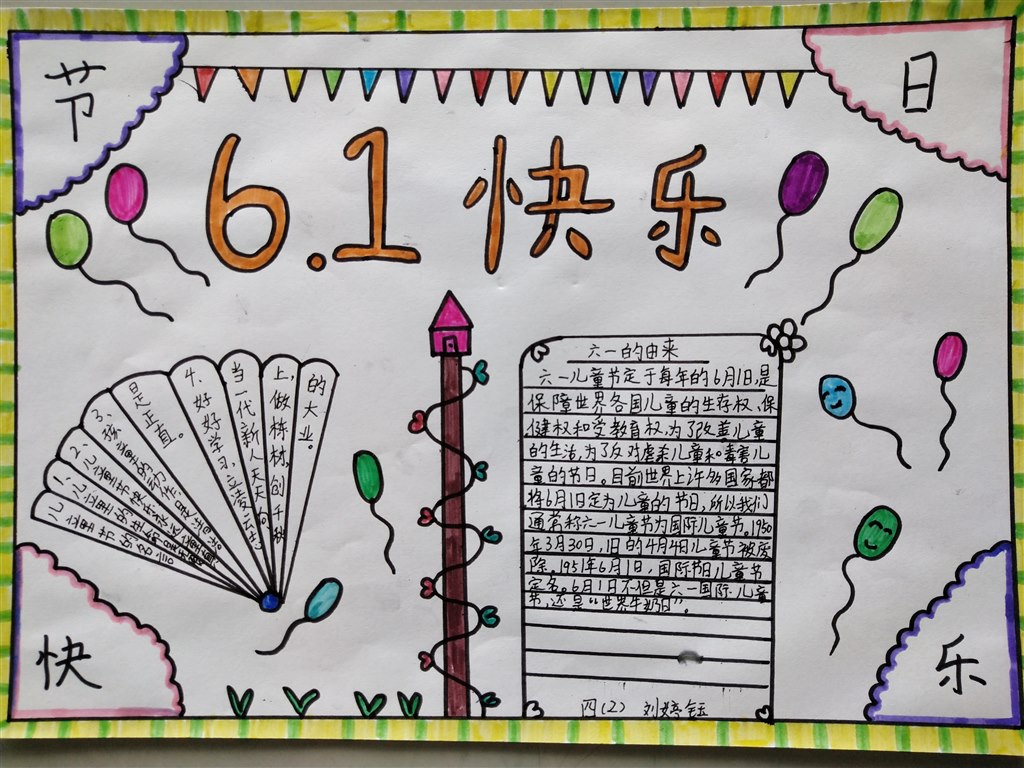 节
日
6.1快乐
六一的由来
六一儿童节定于每年的6月1日,是
保障世界各国儿童的生存权、保
健权和受教育权,为了改善儿童
的生活,为了反对虐杀儿童和毒害儿
童的节日。目前世界上许多国家都
将6月1日定为儿童的节日,所以我们
通常称六一儿童节为国际儿童节。1950
年3月30日,旧的4月4日儿童节被废
除。1951年6月1日,国际节日儿童节
定名。6月1日不但是六一国际儿童
节,还是“世界牛奶日”。
四(2) 刘婷钰
儿童节的名言
1、儿童的
2、儿童节快乐永
3、孩童的动作
是正直。
4、好好学习,立凌云志;
当一代新人天天向
上,做栋材,创千秋
的大业。
快
乐